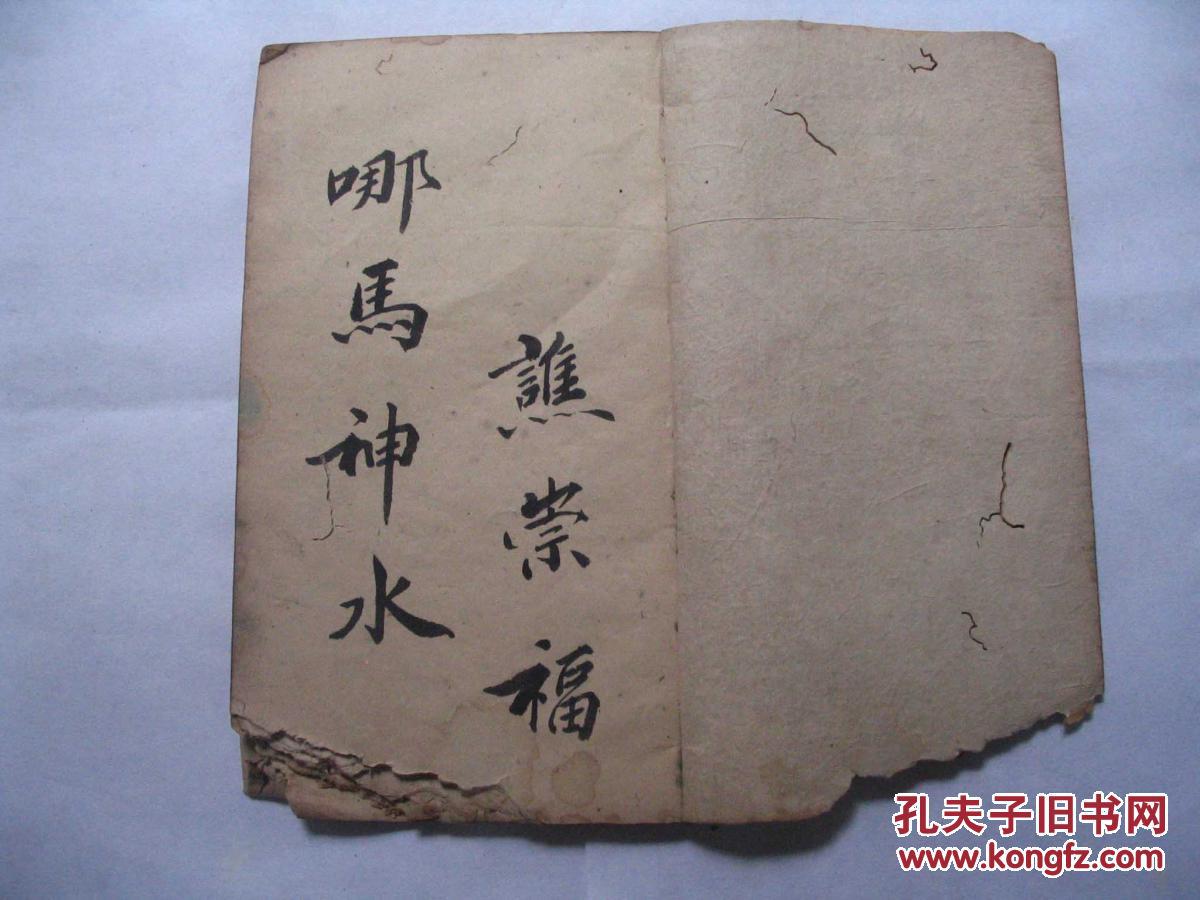 譙崇福
哪馬神水
孔夫子旧书网
www.kongfz.com